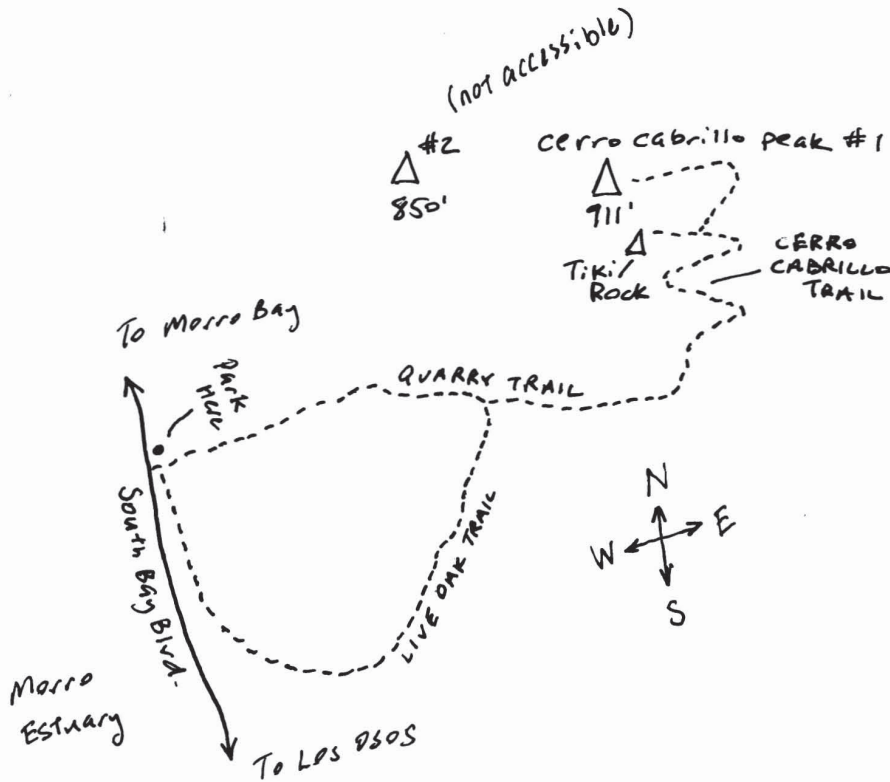 (not accessible)
#2
850'
cerro cabrillo peak #1
911'
Tiki
Rock
CERRO
CABRILLO
TRAIL
To Morro Bay
Park
Here
QUARRY TRAIL
South Bay Blvd.
LIVE OAK TRAIL
N
W
E
S
Morro
Estuary
To Los Osos